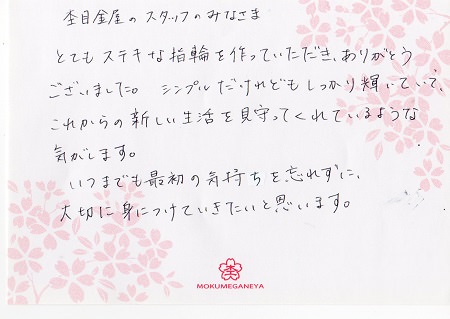 杢目金屋のスタッフのみなさま
とてもステキな指輪を作っていただき、ありがとう
ございました。 シンプルだけれどもしっかり輝いていて、
これからの新しい生活を見守ってくれているような
気がします。
いつまでも最初の気持ちを忘れずに、
大切に身につけていきたいと思います。
杢
MOKUMEGANEYA